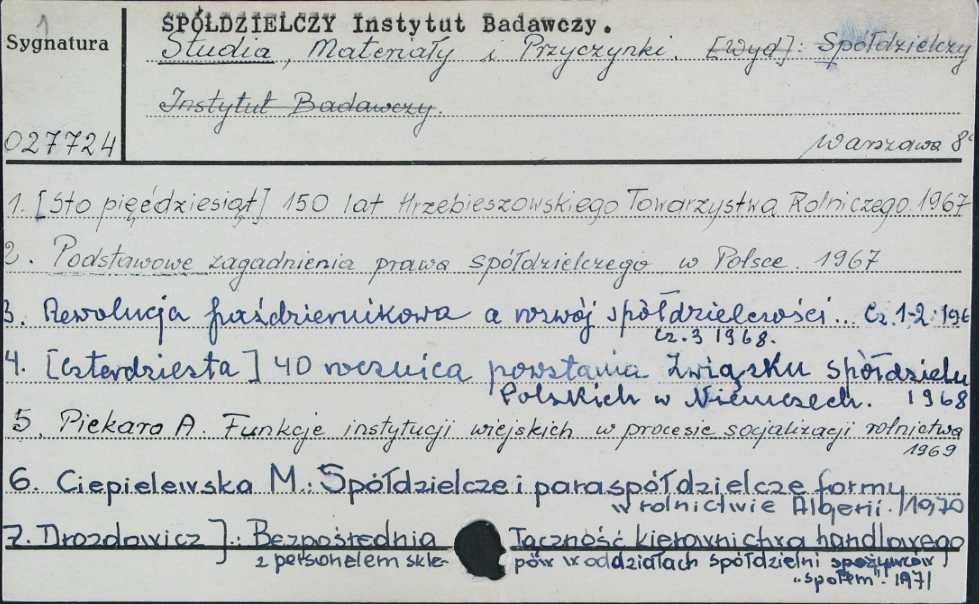 1
SPÓŁDZIELCZY Instytut Badawczy.
Sygnatura
Studia, Materiały i Przyczynki. [Wyd]: Spółdzielczy
Instytut Badawczy.
027724
Warszawa 8°
1. [Sto pięćdziesiąt] 150 lat Hrzebieszowskiego Towarzystwa Rolniczego 1967
2. Podstawowe zagadnienia prawa spółdzielczego w Polsce. 1967
3. Rewolucja październikowa a rozwój spółdzielczości... Cz. 1-2: 196
Cz. 3 1968.
4. [Czterdziesta] 40 rocznica powstania Związku spółdzieln
Polskich w Niemczech. 1968
5. Piekara A. Funkcje instytucji wiejskich w procesie socjalizacji rolnictwa
1969
6. Ciepielewska M.: Spółdzielcze i paraspółdzielcze formy
w rolnictwie Algerii. 1970
7. Drozdowicz J.: Bezpośrednia łączność kierownictwa handlowego
z personelem skle- pów w oddziałach spółdzielni spożywców
"społem". 1971